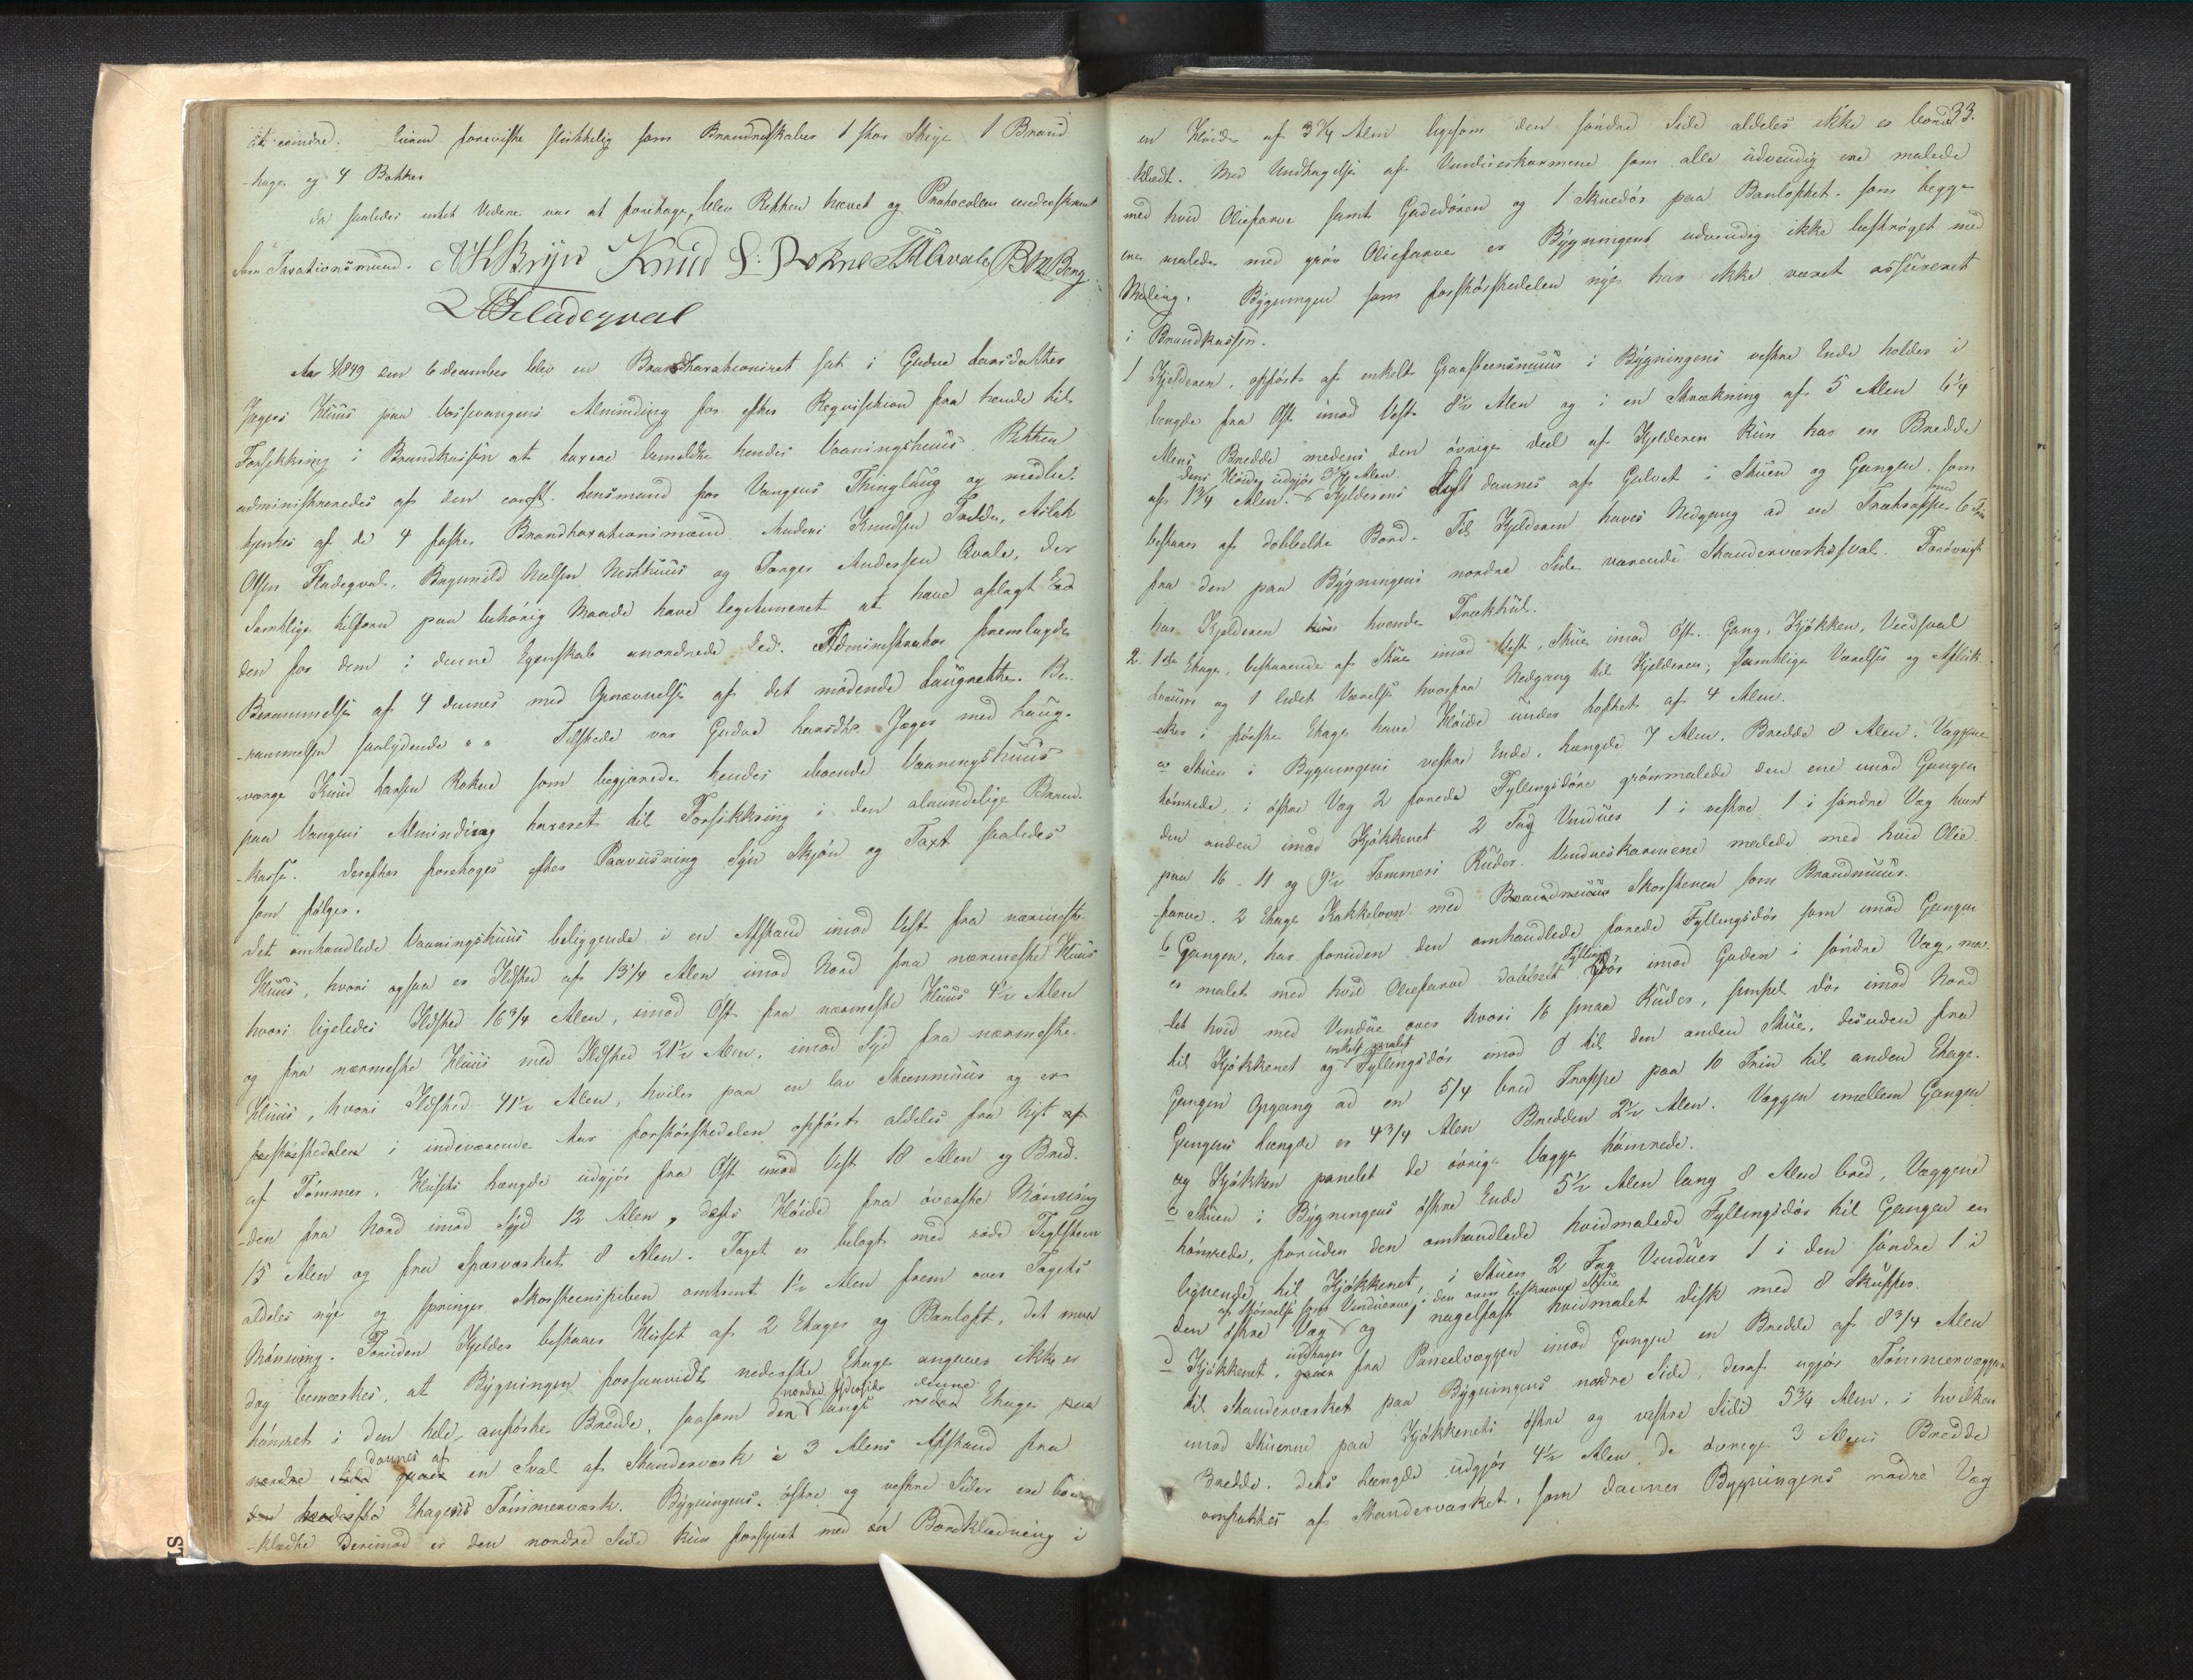 at erindre. Eieren foreviste skikkelig som Brandredskaber 1 stor Stige 1 Brand
-hage og 4 Bøtter
da saaledes intet Videre var at foretage, blev Retten hævet og Protocollen underskrevet
Som Taxationsmænd. AKBryn Knud L: Rokne TAQvale BNBerg
AOFladeqval
Aar 1849 den 6 december blev en Brandtaxationsret sat i Gudve Larsdatter
Jægers Huus paa Vossevangens Alminding for efter Reqvisition fra hende til
Forsikkring i Brandkassen at taxere bemeldte hendes Vaaningshuus Retten
administreredes af den const. Lensmand for Vangens Thinglaug og medbe-
tjentes af de 4 faste Brandtaxationsmænd Anders Knudsen Tvedde, Aslak
Olsen Fladeqval, Brynnild Nielsen Nesthuus og Torger Andersen Qvale, der
samtlige tilforn paa behørig Maade have legitimeret at have aflagt Eed
den for dem i denne Egenskab anordnede Eed. Administrator fremlagde
Berammelse af 4 dennes med Opnævnelse af det mødende Laugrette. Be-
-rammelsen saalydende " " Tilstede var Gudve Larsdtr Jæger med Laug-
-værge Knud Larsen Rokne som begjærede hendes iboende Vaaningshuus
paa Vangens Alminding taxeret til Forsikkring i den almindelige Brand-
-kasse. Derefter foretoges efter Paaviisning Syn Skjøn og Taxt saaledes
som følger.
Det omhandlede Vaaningshuus beliggende i en Afstand imod Vest fra nærmeste
Huus, hvori ogsaa er Ildsted af 13¼ Alen imod Nord fra nærmeste Huus
hvori ligeledes Ildsted 16¾ Alen, imod Øst fra nærmeste Huus 4½ Alen
og fra nærmeste Huus med Ildsted 21½ Alen, imod Syd fra nærmeste
Huus, hvori Ildsted 41½ Alen, hviler paa en lav Steenmuur og er
forstørstedelen i indeværende Aar forstørstedelen opført aldeles fra Nyt af
af Tømmer. Husets Længde udgjør fra Øst imod Vest 18 Alen og Bred-
-den fra Nord imod Syd 12 Alen, dets Høide fra øverste Mønning
15 Alen og fra Sparværket 8 Alen. Taget er belagt med røde Teglsteen
aldeles nye og springer Skorsteenspiben omtrent 1½ Alen frem over Tagets
Mønning. Foruden Kjelder bestaaer Huset af 2 Etager og Bonloft, det maa
dog bemærkes, at Bygningen forsaavidt nederste Etage angaaer ikke er
tømret i den hele anførte Bredde, saasom den nordre Yderside langs denne nedre Etage paa
nordre Side dannes af en Sval af Standerværk i 3 Alens Afstand fra
den nederste Etagens Tømmerværk. Bygningens østre og vestre Sider ere bord-
-klædte Derimod er den nordre Side kun forsynet med en Bordklædning i
33.
en Høide af 3¼ Alen ligesom den søndre Side aldeles ikke er bord-
-klædt. Med Undtagelse af Vindueskarmene som alle udvendig ere malede
med hvid Oliefarve samt Gadedøren og 1 Stuedør paa Bonloftet som begge
ere malede med grøn Oliefarve er Bygningens udvendig ikke bestrøget med
Maling. Bygningen som forstørstedelen nye har ikke været assureret
i Brandkassen.
1 Kjelderen, opført af enkelt Graasteensmuur i Bygningens vestre Ende holder i
Længde fra Øst imod Vest 8½ Alen og i en Strækning af 5 Alen 6¼
Alens Bredde medens den øvrige deel af Kjelderen kun har en Bredde
af 1¾ Alen. dens Høide udgjør 3½ Alen. Kjelderens Loft dannes af Gulvet i Stuen og Gangen som
bestaaer af dobbelte Bord. Til Kjelderen haves Nedgang ad en Trætrappe med 6 Trin
fra den paa Bygningens nordre Side værende Standerværkssval. Forøvrigt
har Kjelderen tvende Trækhul.
2. 1ste Etage, bestaaende af Stue imod Vest, Stue imod Øst. Gang, Kjøkken, Vedsval
og 1 lidet Værelse hvorfra Nedgang til Kjelderen; samtlige Værelser og Afluk-
-ker i første Etage have Høide under Loftet af 4 Alen.
a Stuen i Bygningens vestre Ende, Længde 7 Alen, Bredde 8 Alen, Væggene
tømrede, i østre Væg 2 forede Fyllingsdøre grønmalede den ene imod Gangen
den anden imod Kjøkkenet 2 Fag Vinduer 1 i vestre 1 i søndre Væg hvert
paa 16 11 og 9½ Tommers Ruder. Vindueskarmene malede med hvid Olie-
farve. 2 Etage Kakkelovn med Brandmuur Skorstenen som Brandmuur.
b Gangen, har foruden den omhandlede forede Fyllingsdør som imod Gangen
er malet med hvid Oliefarve dobbelt Fyllingsdør imod Gaden i søndre Væg, ma-
-let hvid med Vindue over hvori 16 smaa Ruder, simpel dør imod Nord
til Kjøkkenet og enkelt malet Fyllingsdør imod Ø til den anden Stue, desuden fra
Gangen Opgang ad en 5/4 bred Trappe paa 10 Trin til anden Etage.
Gangens Længde er 4¾ Alen Bredden 2½ Alen. Væggen imellem Gangen
og Kjøkken panelet de øvrige Vægge tømrede.
c Stuen i Bygningens østre Ende 5½ Alen lang 8 Alen bred, Væggene
tømrede, foruden den omhandlede hvidmalede Fyllingsdør til Gangen en
lignende til Kjøkkenet, i Stuen 2 Fag Vinduer 1 i den søndre 1 i
den østre Væg af Størrelse som Vinduerne i den oven beskrevne Stue og 1 nagelfast hvidmalet disk med 8 Skuffer.
d Kjøkkenet, indtager fra Paneelvæggen imod Gangen en Bredde af 8¾ Alen
til Standerværket paa Bygningens nordre Side, deraf ugjør Tømmervæggen
imod Stuerne paa Kjøkkenets østre og vestre Side 5¾ Alen, i hvilken
Bredde, dets Længde udgjør 4½ Alen, de øvrige 3 Alens Bredde
omfattes af Standerværket, som danner Bygningens nordre Væg